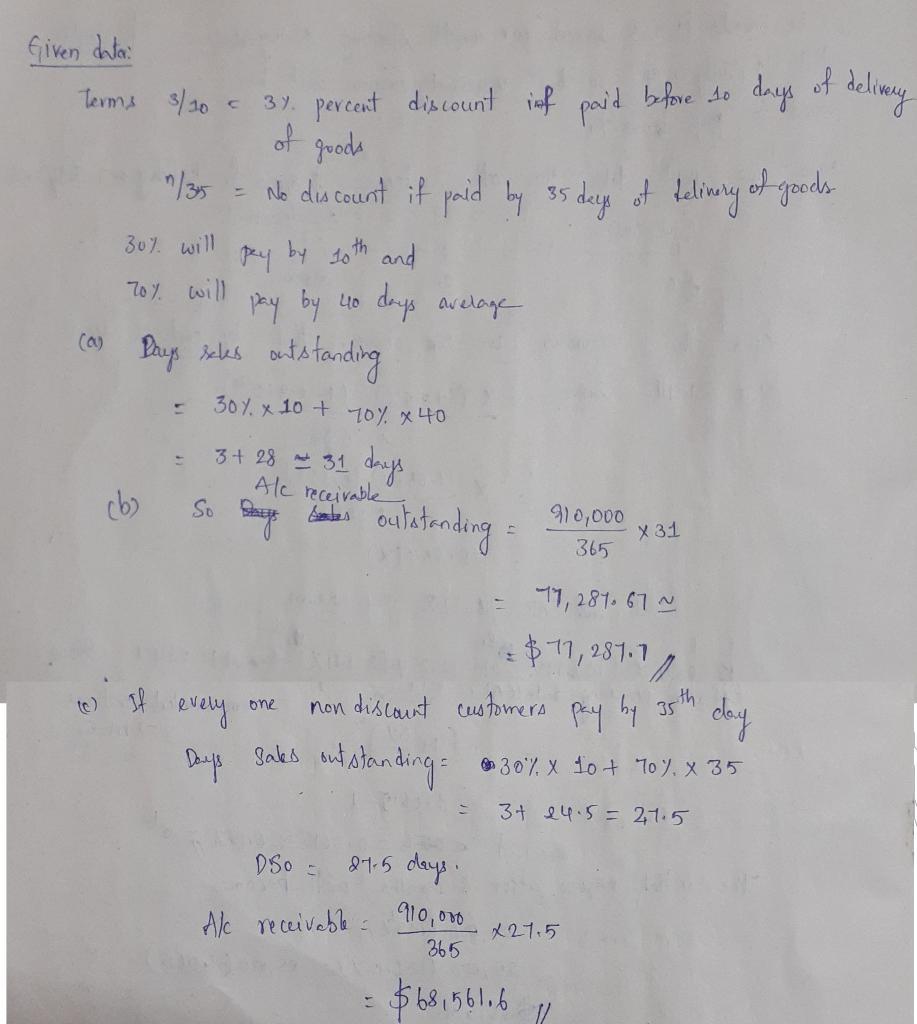 Given data:
Terms 3/10 = 3% percent discount if paid before 10 days of delivery
of goods
n/35 = No discount if paid by 35 days of delivery of goods
30% will pay by 10th and
70% will pay by 40 days average
(a) Days sales outstanding
= 30% x 10 + 70% x 40
= 3 + 28 ≃ 31 days
(b) So A/c receivable outstanding = 910,000/365 x 31
= 77,287.67 ≃
= $77,287.7 //
(c) If every one non discount customers pay by 35th day
Days Sales outstanding = 30% x 10 + 70% x 35
= 3 + 24.5 = 27.5
DSO = 27.5 days.
A/c receivable = 910,000/365 x 27.5
= $68,561.6 //